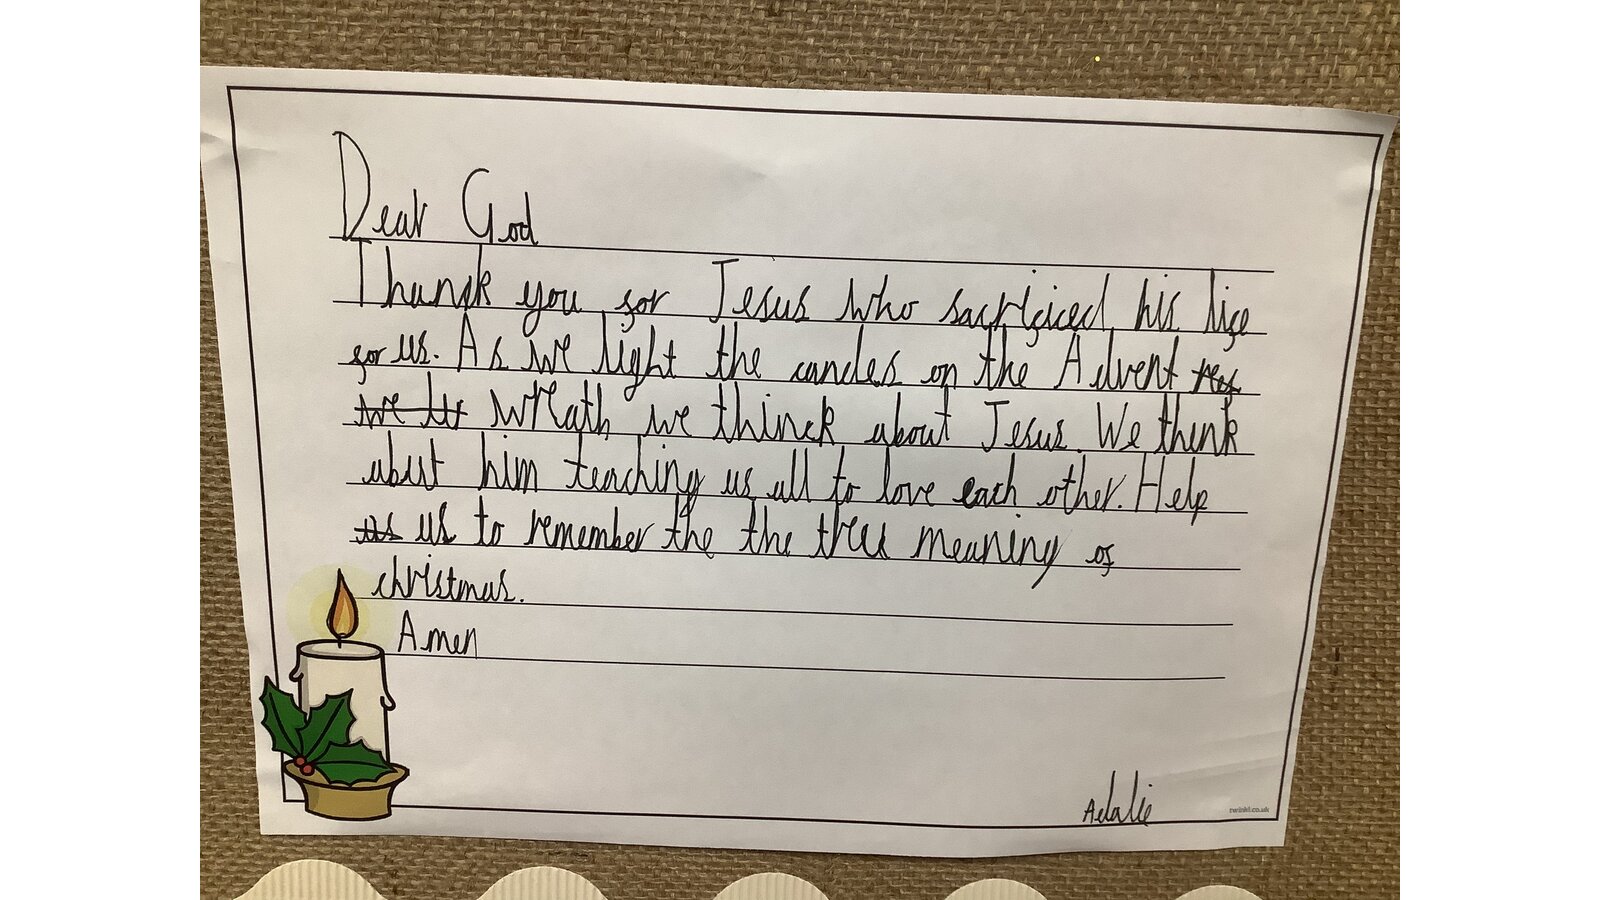 Dear God
Thanck you for Jesus who sacrificed his life
for us. As we light the candes on the Advent
wreath we thinck about Jesus. We think
abut him teaching us all to love each other. Help
us to remember the the treu meaning of
christmas.
Amen
Adalie
twinkl.co.uk